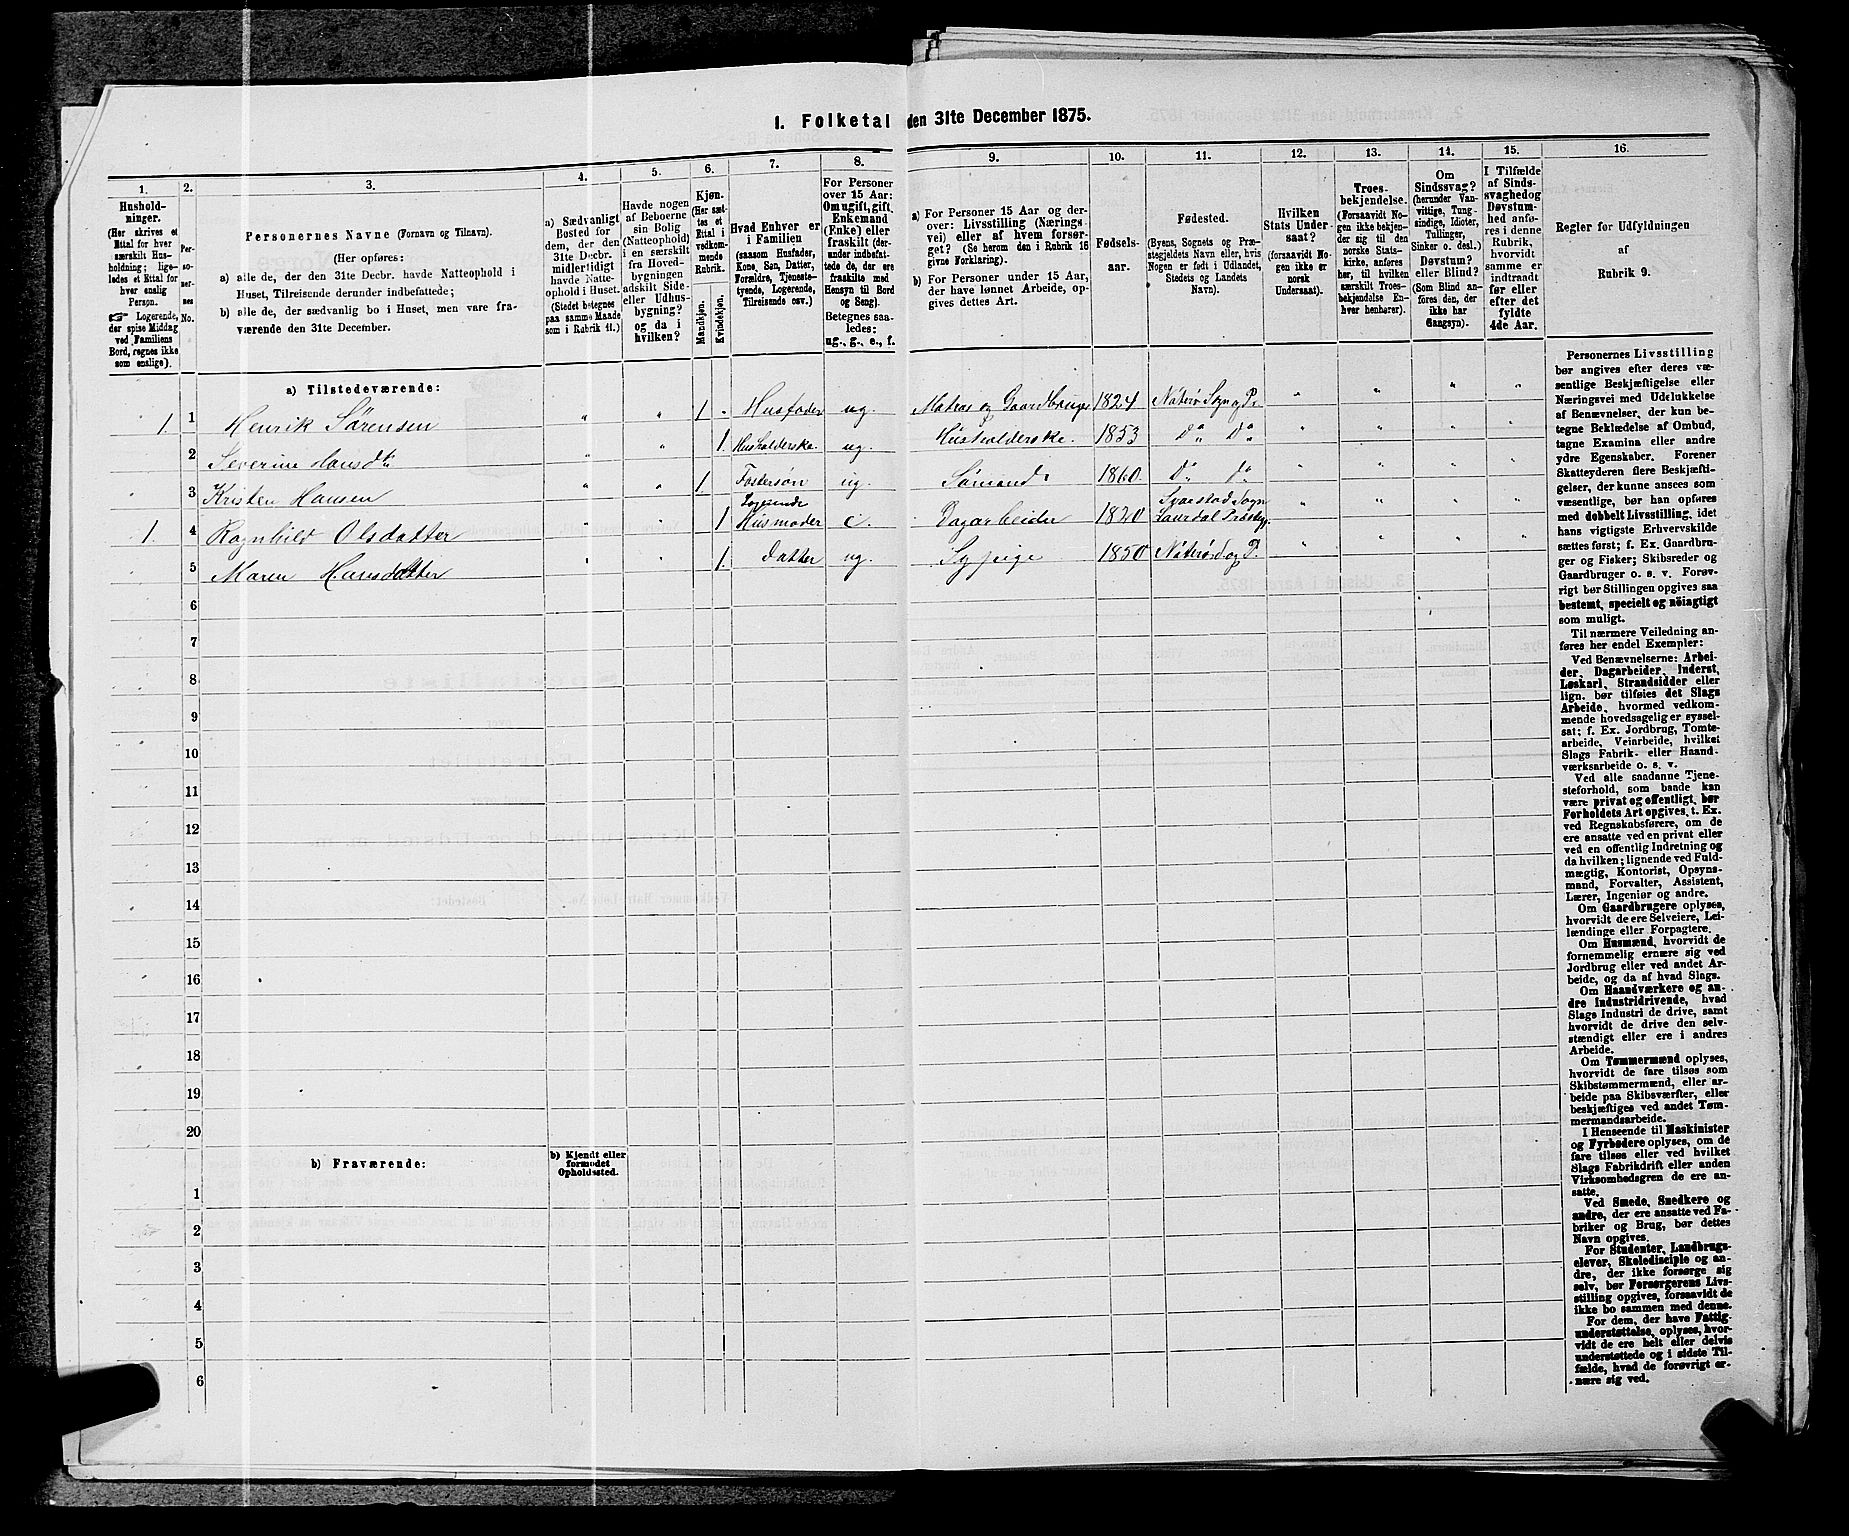 1. Folketal den 31te December 1875.
1. 2. 3. 4. 5. 6. 7. 8. 9. 10. 11. 12. 13. 14. 15. 16.
Hushold-
ninger.
(Her skrives et
Ettal for hver
særskilt Hus-
holdning; lige-
ledes et Ettal for
hver enslig
Person.
☞ Logerende,
der spise Middag
ved Familiens
Bord, regnes ikke
som enslige).
Per-
so-
ner-
nes
No.
Personernes Navne (Fornavn og Tilnavn).
(Her opføres:
a) alle de, der den 31te Decbr. havde Natteophold i
Huset, Tilreisende derunder indbefattede;
b) alle de, der sædvanlig bo i Huset, men vare fra-
værende den 31te December.
a) Sædvanligt
Bosted for
dem, der den
31te Decbr.
midlertidigt
havde Natte-
ophold i Huset
(Stedet betegnes
paa samme Maade
som i Rubrik 11.)
Havde nogen
af Beboerne
sin Bolig
(Natteophold)
i en særskilt
fra Hoved-
bygningen
adskilt Side-
eller Udhus-
bygning?
og da i
hvilken?
Kjøn.
(Her sæt-
tes et
Ettal i
vedkom-
mende
Rubrik.
Mandkjøn.
Kvindekjøn.
Hvad Enhver er
i Familien
(saasom Husfader,
Kone, Søn, Datter,
Forældre, Tjeneste-
tyende, Logerende,
Tilreisende osv.)
For Personer
over 15 Aar:
Om ugift, gift,
Enkemand
(Enke) eller
fraskilt (der-
under indbefat-
tede de, der ere
fraskilte med
Hensyn til Bord
og Seng).
Betegnes saa-
ledes:
ug., g., e., f.
a) For Personer 15 Aar og der-
over: Livsstilling (Nærings-
vei) eller af hvem forsør-
get? (Se herom den i Rubrik 16
givne Forklaring).
b) For Personer under 15 Aar,
der have lønnet Arbeide, op-
gives dettes Art.
Fødsels-
aar.
Fødested.
(Byens, Sognets og Præ-
stegjeldets Navn eller, hvis
Nogen er født i Udlandet,
Stedets og Landets
Navn).
Hvilken
Stats Under-
saat?
(forsaavidt No-
gen ikke er
norsk
Undersaat).
Troes-
bekjendelse.
(Forsaavidt No-
gen ikke bekjen-
der sig til den
norske Stats-
kirke, anføres
her, til hvilken
særskilt Troes-
bekjendelse En-
hver henhører).
Om
Sindssvag?
(herunder Van-
vittige, Tung-
sindige, Idioter,
Tullinger,
Sinker o. desl.)
Døvstum?
eller Blind?
(Som Blind an-
føres den, der
ikke har
Gangsyn).
I Tilfælde
af Sinds-
svaghed og
Døvstum-
hed anfø-
res i denne
Rubrik,
hvorvidt
samme er
indtraadt
før eller
efter det
fyldte
4de Aar.
Regler for Udfyldningen
af
Rubrik 9.
a) Tilstedeværende:
1. 1 Henrik Sørensen " " 1 " Husfader ug. Matros og Gaardbruger 1824 Nøterø Sogn og P. " " " "
2 Severine Hansdtr. " " 1. Husholderske ug. Husholderske. 1853 Do Do " " " "
3 Kristen Hansen " " 1. Fostersøn ug. Sømand. 1860. Do Do " " " "
1. 4 Ragnhild Olsdatter " " 1 Logerende Husmoder e. Dagarbeider 1820 Svarstad Sogn Laurdal Præstegj. " " " "
5 Maren Hansdatter " " 1. Datter ug. Sypige 1850 Nøterø S. og P. " " " "
6
7
8
9
10
11
12
13
14
15
16
17
18
19
20
b) Fraværende:
b) Kjendt eller
formodet
Opholdssted.
1
2
3
4
5
6
Personernes Livsstilling
bør angives efter deres væ-
sentlige Beskjæftigelse eller
Næringsvei med Udelukkelse
af Benævnelser, der kun be-
tegne Beklædelse af Ombud,
tagne Examina eller andre
ydre Egenskaber. Forener
Skatteyderen flere Beskjæfti-
gelser, der kunne ansees som
væsentlige, bør han opføres
med dobbelt Livsstilling, idet
hans vigtigste Erhvervskilde
sættes først; f. Ex. Gaardbru-
ger og Fisker; Skibsreder og
Gaardbruger o. s. v. Forøv-
rigt bør Stillingen opgives saa
bestemt, specielt og nöiagtigt
som muligt.
Til nærmere Veiledning an-
føres her endel Exempler:
Ved Benævnelserne: Arbei-
der, Dagarbeider, Inderst,
Løskarl, Strandsidder eller
lign. bør tilføies det Slags
Arbeide, hvormed vedkom-
mende hovedsagelig er syssel-
sat; f. Ex. Jordbrug, Tomte-
arbeide, Veiarbeide, hvilket
Slags Fabrik- eller Haand-
værksarbeide o. s. v.
Ved alle saadanne Tjene-
steforhold, som baade kan
være privat og offentligt, bør
Forholdets Art opgives, t. Ex.
ved Regnskabsførere, om de
ere ansatte ved en privat eller
ved en offentlig Indretning og
da hvilken; lignende ved Fuld-
mægtig, Kontorist, Opsyns-
mand, Forvalter, Assistent,
Lærer, Ingeniør og andre.
Om Gaardbrugere oplyses,
hvorvidt de ere Selveiere, Lei-
lændinge eller Forpagtere.
Om Husmænd, hvorvidt de
fornemmelig ernære sig ved
Jordbrug eller ved andet Ar-
beide, og da af hvad Slags.
Om Haandværkere og an-
dre Industridrivende, hvad
Slags Industri de drive, samt
hvorvidt de drive den selv-
stændigt eller ere i andres
Arbeide.
Om Tømmermænd oplyses,
hvorvidt de fare tilsøs som
Skibstømmermænd, eller ar-
beide paa Skibsværfter, eller
beskjæftiges ved andet Tøm-
mermandsarbeide.
I Henseende til Maskinister
og Fyrbødere oplyses, om de
fare tilsøs eller ved hvilket
Slags Fabrikdrift eller anden
Virksomhedsgren de ere an-
satte.
Ved Smede, Snedkere og
andre, der ere ansatte ved Fa-
briker og Brug, bør dettes
Navn opgives.
For Studenter, Landbrugs-
elever, Skoledisciple og an-
dre, der ikke forsørge sig
selv, bør Forsørgerens Livs-
stilling opgives, forsaavidt de
ikke bo sammen med denne.
For dem, der have Fattig-
understøttelse, oplyses, hvor-
vidt de ere helt eller delvis
understøttede og i sidste Til-
fælde, hvad de forøvrigt er-
nære sig ved.